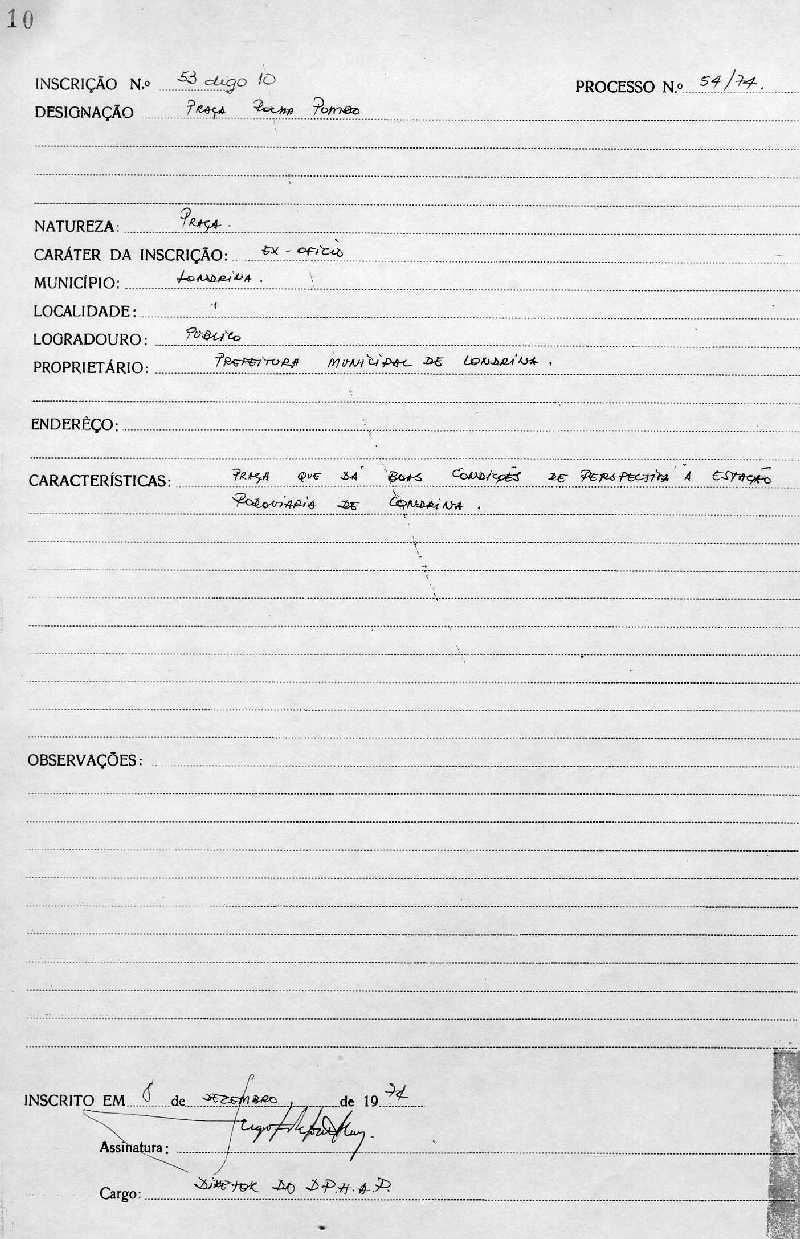 10
INSCRIÇÃO N.º 53 digo 10 PROCESSO N.º 54/74.
DESIGNAÇÃO PRAÇA ROCHA POMBO
NATUREZA: PRAÇA.
CARÁTER DA INSCRIÇÃO: EX-OFICIO
MUNICÍPIO: LONDRINA.
LOCALIDADE: "
LOGRADOURO: PÚBLICO
PROPRIETÁRIO: PREFEITURA MUNICIPAL DE LONDRINA.
ENDERÊÇO:
CARACTERÍSTICAS: PRAÇA QUE DÁ BOAS CONDIÇÕES DE PERSPECTIVA A ESTAÇÃO
RODOVIARIA DE LONDRINA.
OBSERVAÇÕES:
INSCRITO EM 8 de DEZEMBRO de 1974
Assinatura:
Cargo: DIRETOR DO D.P.H.A.P.